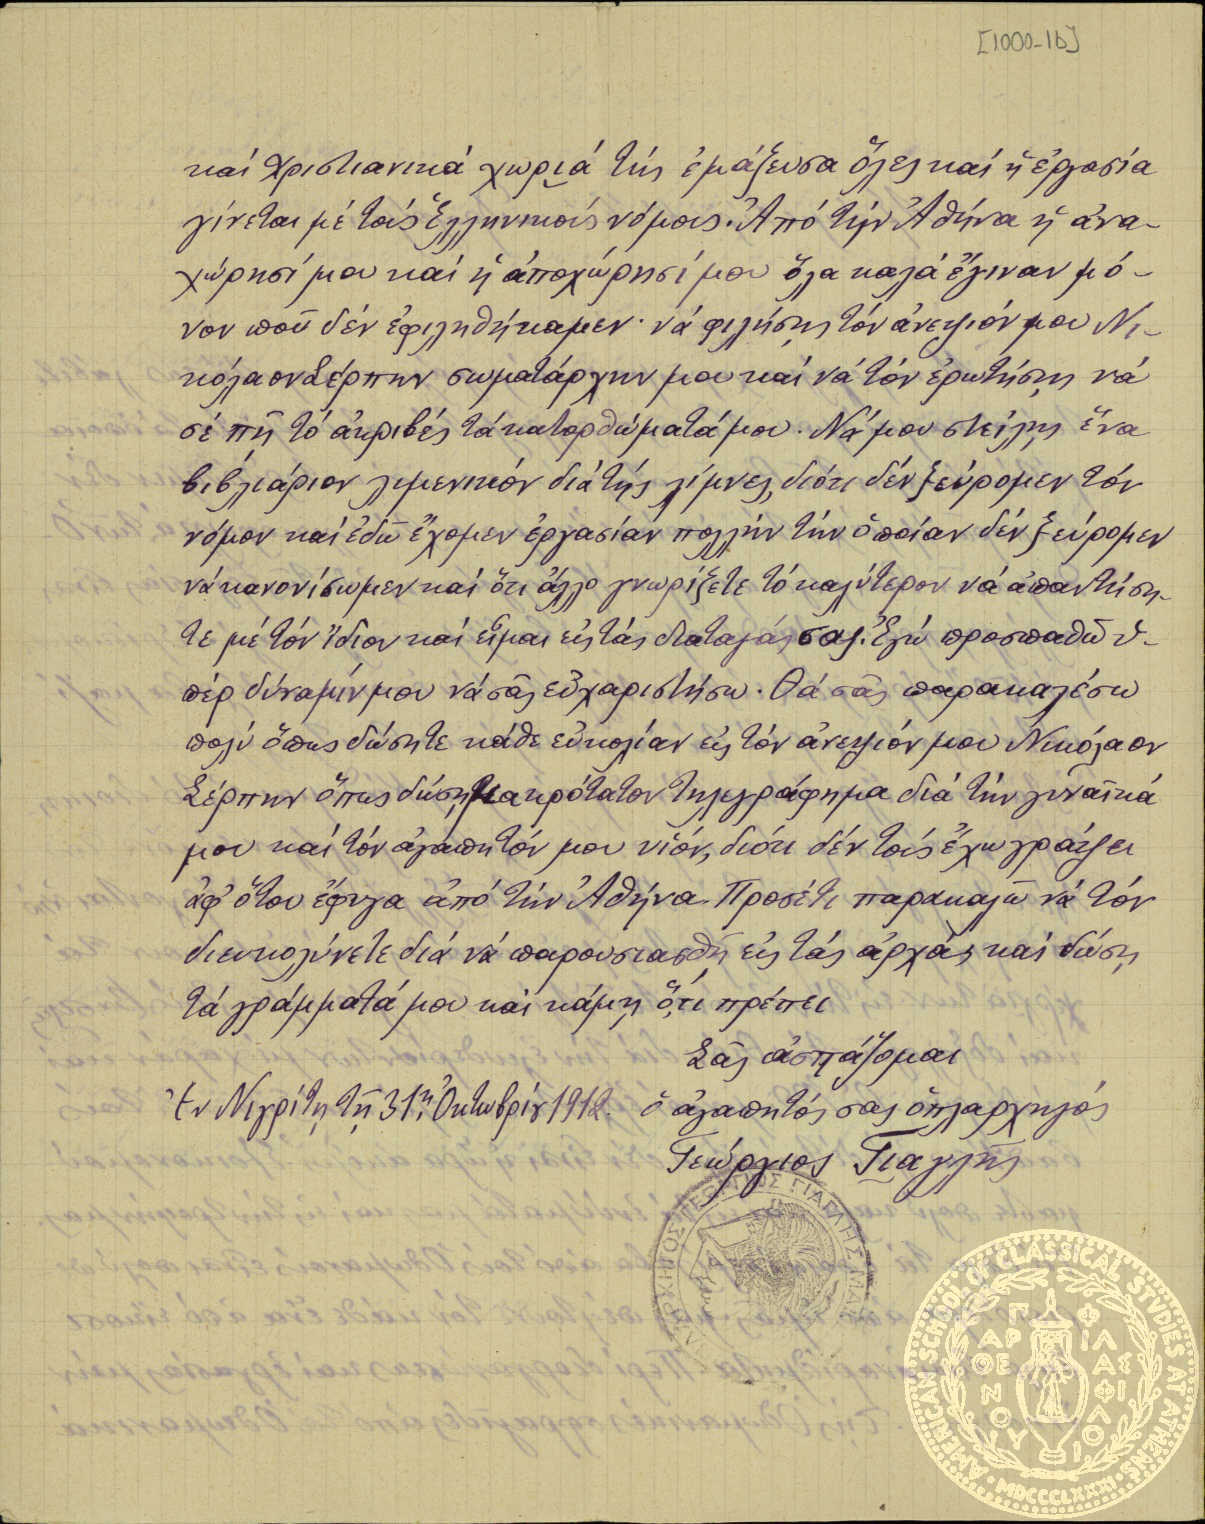 [1000-1b]
καί Χριστιανικά χωριά τής ἐμάζευσα ὅλες καί ἡ ἐργασία
γίνεται μέ τούς Ἑλληνικούς νόμους. Ἀπό τήν Ἀθήνα ἡ ἀνα-
χώρησί μου καί ἡ ἀποχώρησί μου ὅλα καλά ἔγιναν μό-
νον ποῦ δέν ἐφιληθήκαμεν· νά φιλήσῃς τόν ἀνεψιόν μου Νι-
κόλαον Σέρπην σωματάρχην μου καί νά τόν ἐρωτήσῃς νά
σέ πῇ τό ἀκριβές τά κατορθώματά μου. Νά μου στείλῃς ἕνα
βιβλιάριον λιμενικόν διά τής λίμνες, διότι δέν ξεύρομεν τόν
νόμον καί ἐδῶ ἔχομεν ἐργασίαν πολλήν τήν ὁποίαν δέν ξεύρομεν
νά κανονίσωμεν καί ὅτι ἄλλο γνωρίζετε τό καλύτερον νά ἀπαντήση-
τε μέ τόν ἴδιον καί εἶμαι εἰς τάς διαταγάς σας. Ἐγώ προσπαθῶ ὑ-
πέρ δύναμίν μου νά σᾶς εὐχαριστήσω. Θά σᾶς παρακαλέσω
πολύ ὅπως δώσητε κάθε εὐκολίαν εἰς τόν ἀνεψιόν μου Νικόλαον
Σέρπην ὅπως δώσῃ μακρότατον τηλεγράφημα διά τήν γυναῖκά
μου καί τόν ἀγαπητόν μου υἱόν, διότι δέν τούς ἔχω γράψει
ἀφ' ὅτου ἔφυγα ἀπό τήν Ἀθήνα. Προσέτι παρακαλῶ νά τόν
διευκολύνετε διά νά παρουσιασθῇ εἰς τάς ἀρχάς καί δώσῃ
τά γράμματά μου καί κάμῃ ὅ,τι πρέπει
Σᾶς ἀσπάζομαι
Ἐν Νιγρίτῃ τῇ 31ῃ Ὀκτωβρίου 1912. ὁ ἀγαπητός σας ὁπλαρχηγός
Γεώργιος Γιαγλῆς
ΑΡΧΗΓΟΣ ΓΕΩΡΓΙΟΣ ΓΙΑΓΛΗΣ ΜΑΚ
AMERICAN SCHOOL OF CLASSICAL STUDIES AT ATHENS
ΠΑΡΘΕΝΟΥ ΦΙΛΑΣ ΦΙΛΟΙ
MDCCCLXXXI